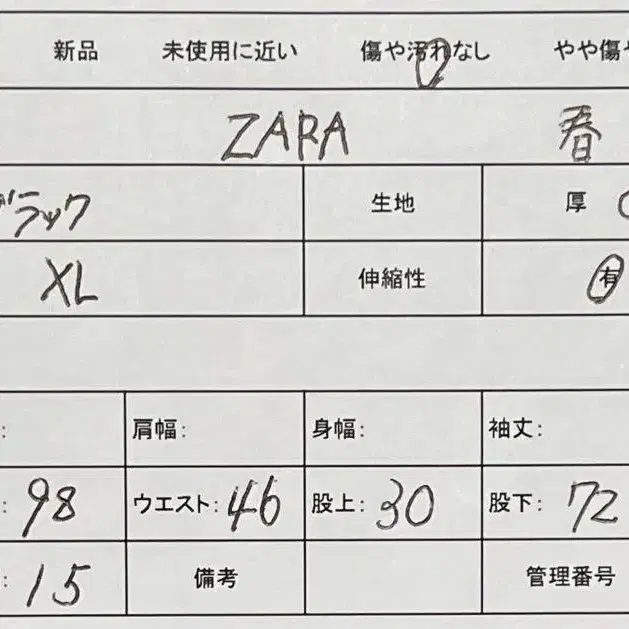 新品 未使用に近い 傷や汚れなし やや傷や
ZARA 春
ブラック 生地 厚
XL 伸縮性 有
: 肩幅: 身幅: 袖丈:
: 98 ウエスト: 46 股上: 30 股下: 72
: 15 備考 管理番号